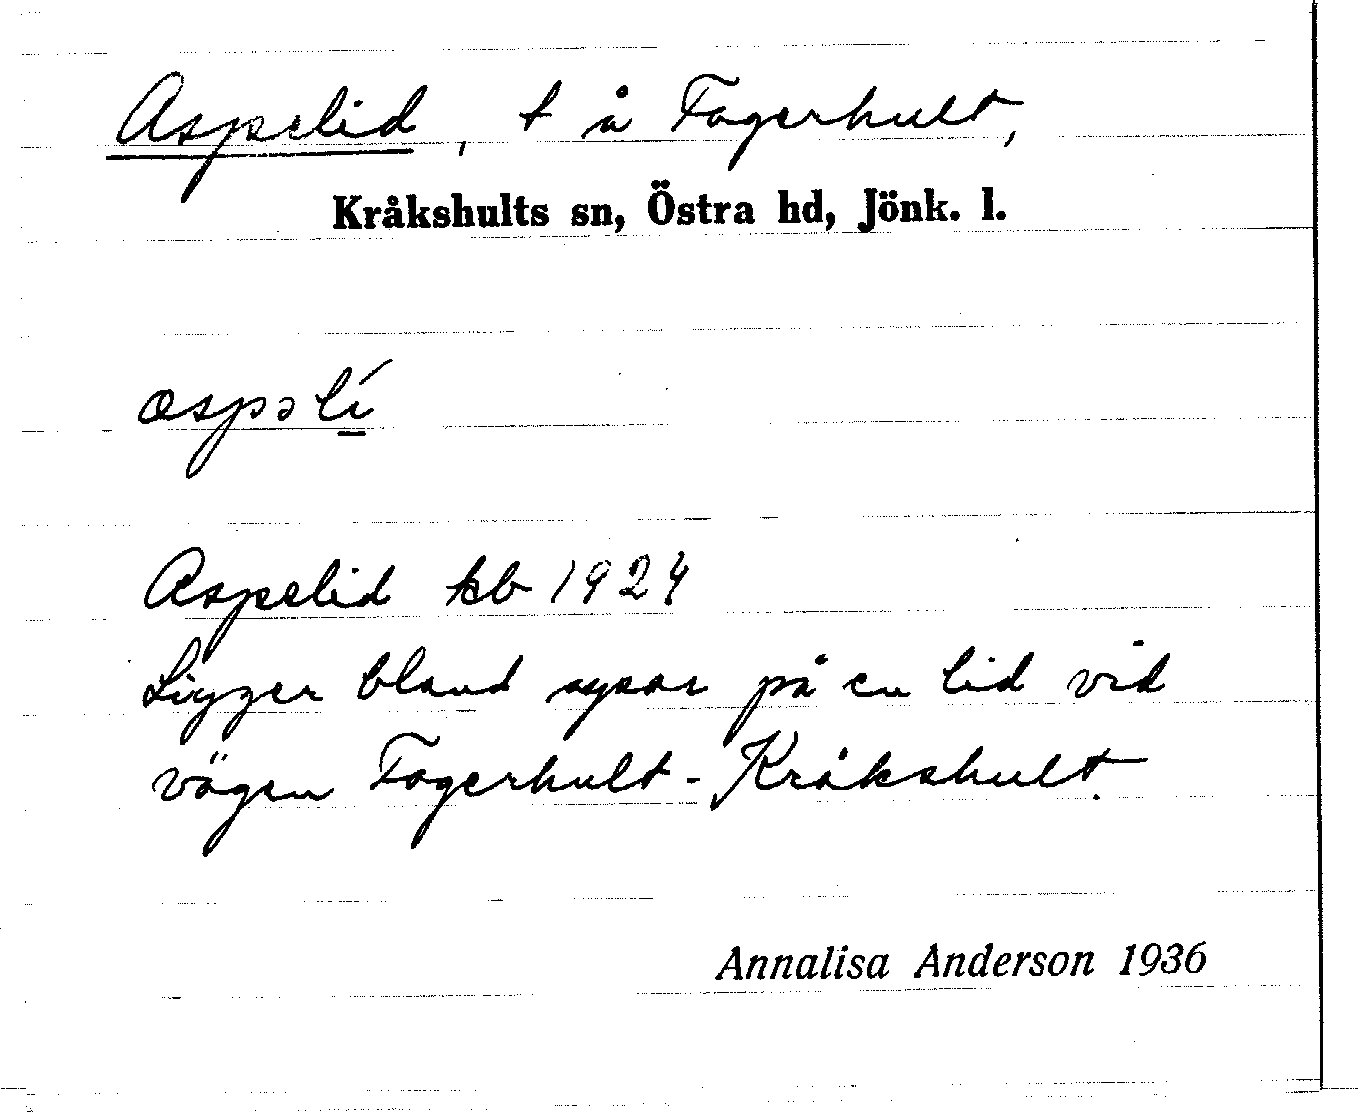 Aspelid, t å Fagerhult,
Kråkshults sn, Östra hd, Jönk. l.
aspəlí
Aspelid kb 1924
Ligger bland aspar på en lid vid
vägen Fagerhult - Kråkshult.
Annalisa Anderson 1936